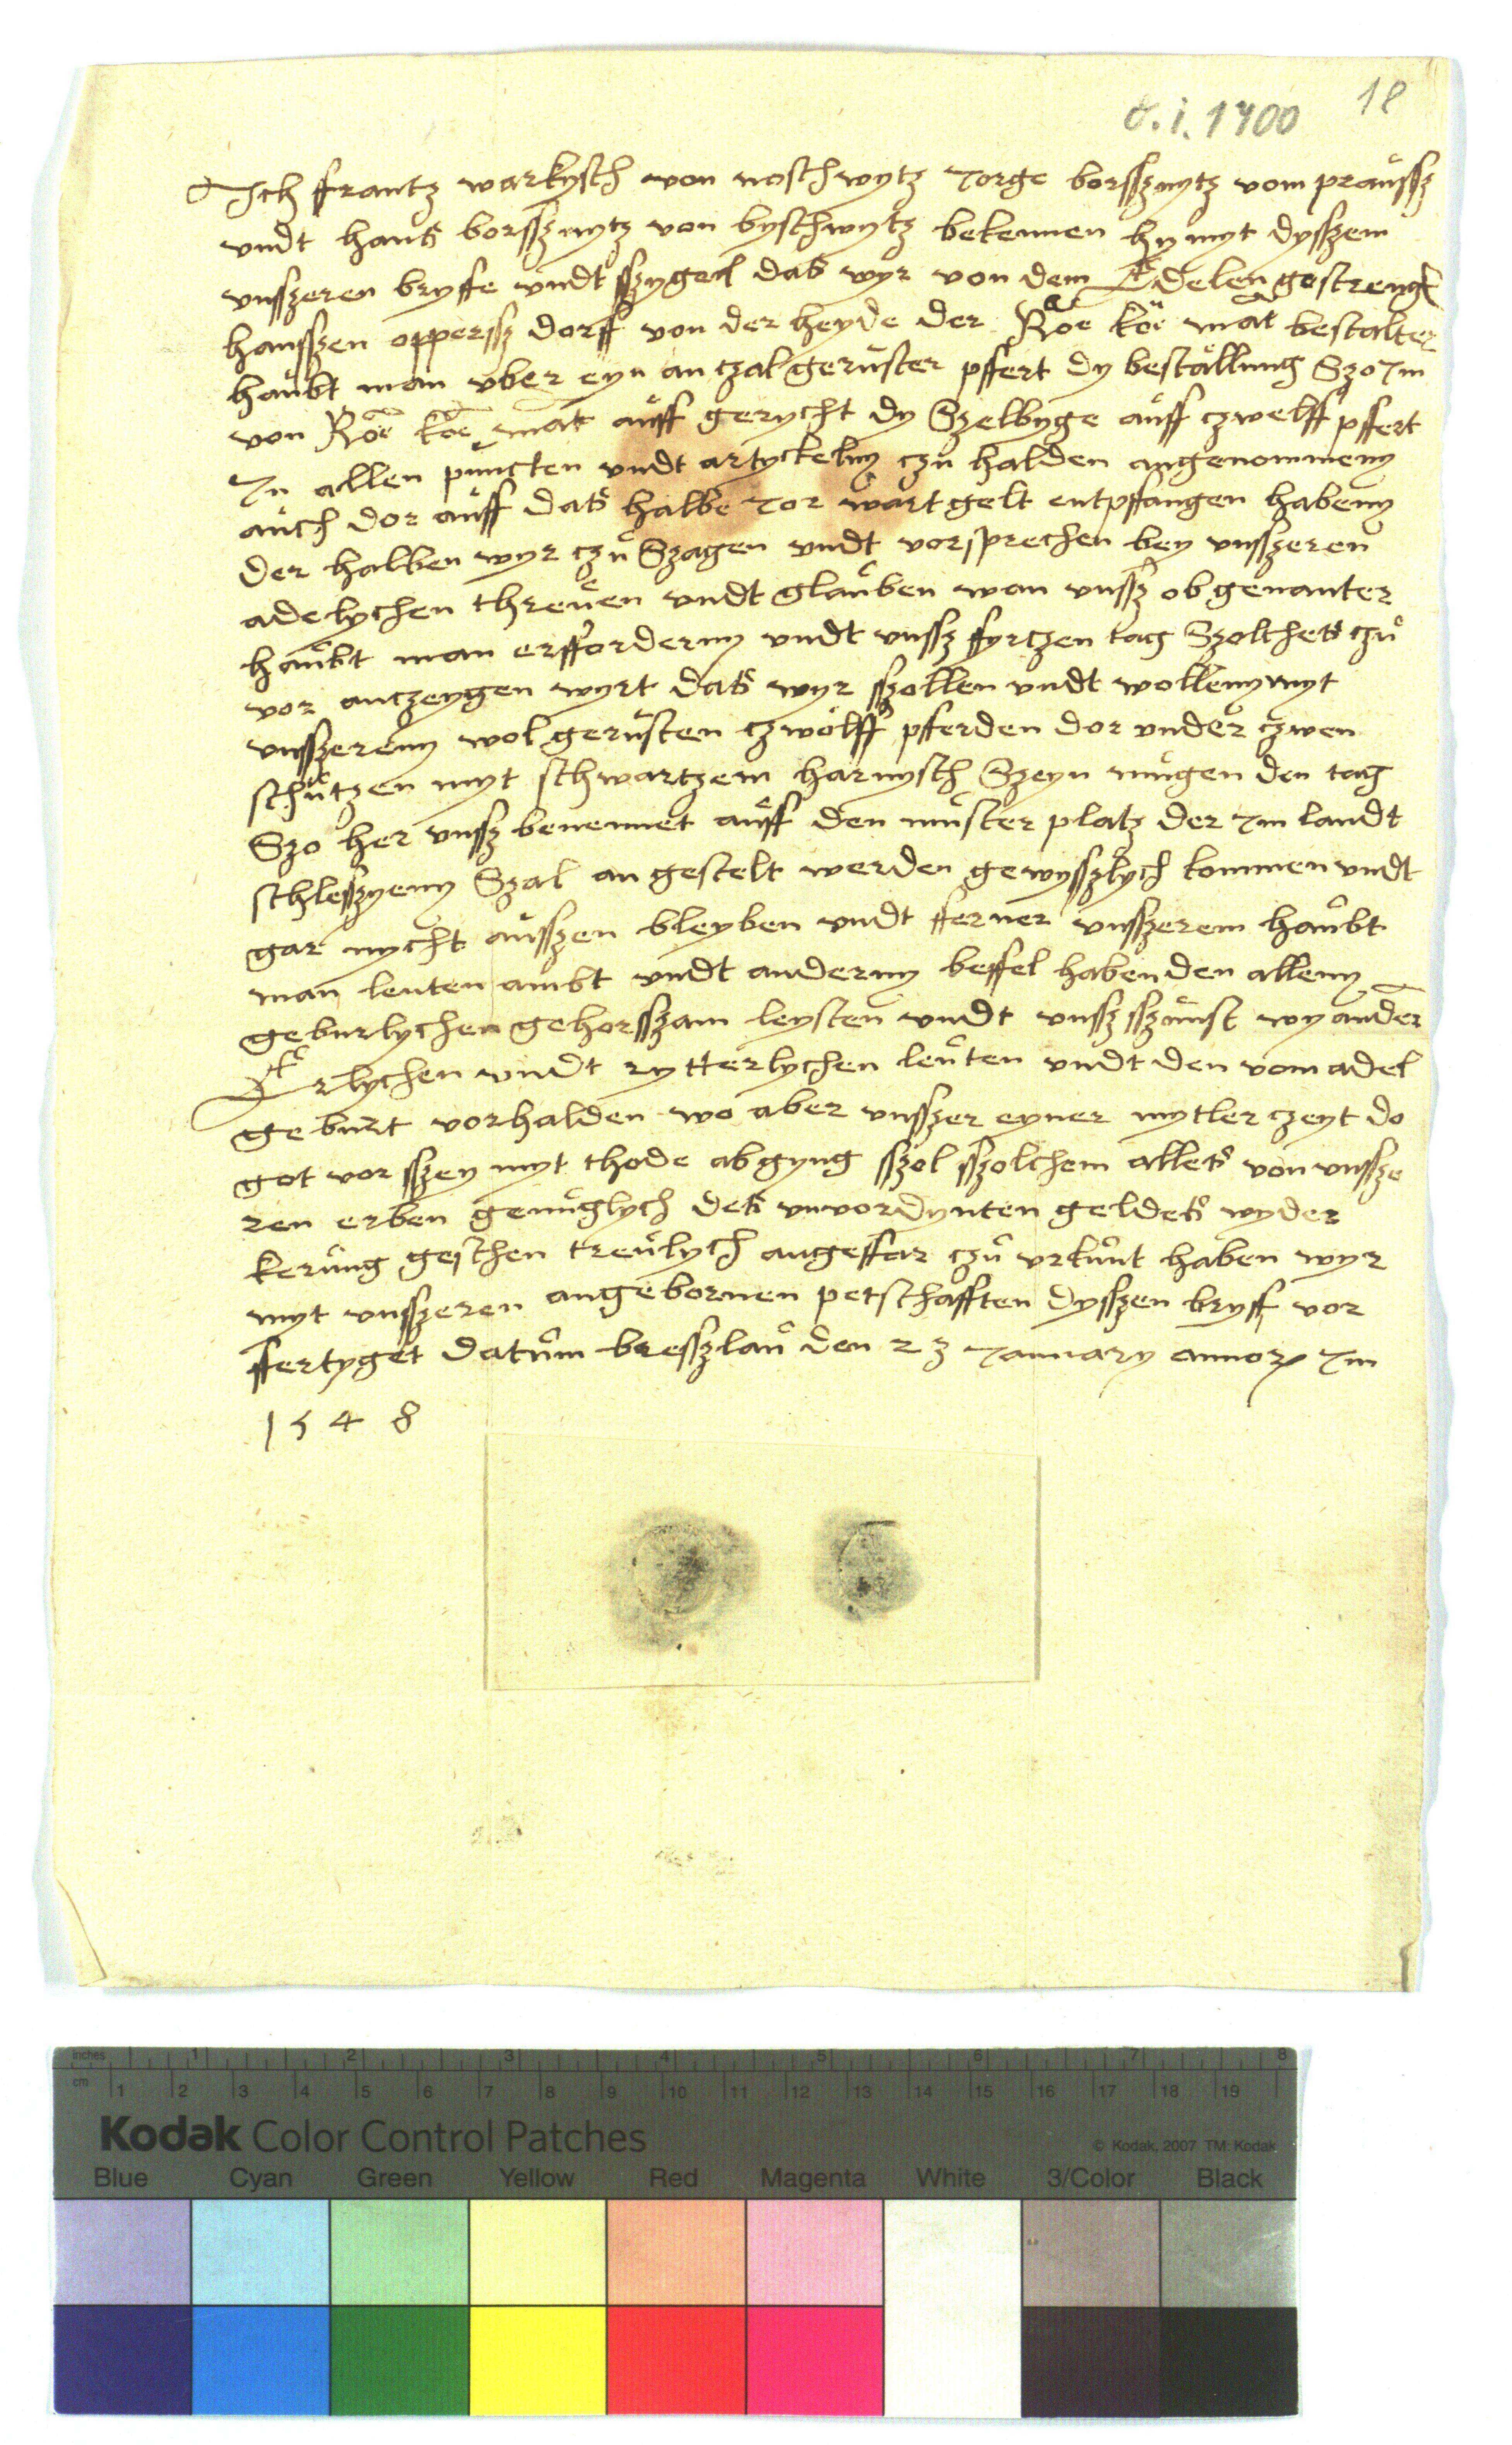 18
d. i. 1400
Ich ffrantz warkysch von noschwytz Jorge borssznytz vom praussz
vndt hans borssznytz von byschwytz bekennen hy myt dysszem
vnsszeren bryffe vndt sszygell das wyr von dem Edelen gestreng
hansszen opperssz dorff von der heyde der Röe köe mat bestalter
haubt man vber eyn an czal geruster pffert dy bestallung Szo Im
von Röe köe mat auff gerycht dy Szelbyge auff czwelff pffert
In allen puncten vndt artyckelnn czu halden angenommenn
auch dor auff das halbe Jor wart gelt entpffangen habenn
der halben wyr czu Szagen vndt vorsprechen bey vnsszeren
adelychen threuen vndt glauben wan vnssz obgenanter
haubt man erffordernn vndt vnssz ffyrczen tag Szolches czu
vor anczeygen wyrt das wyr sszollen vndt wollenn myt
vnsszerenn wol gerusten czwolff pfferden dor vnder czwen
schutzen myt schwartzem harnysch Szeyn mugen den tag
Szo her vnssz benennet auff den muster platz der Im landt
schlesszyenn Szal an gestelt werden gewysszlych kommen vndt
gar nycht ausszen bleyben vndt fferner vnsszerem haubt
man leuten ambt vndt andernn beffel habenden allenn
geburlychen gehorsszam leysten vndt vnssz sszunst wy ander
Erlychen vndt rytterlychen leuten vndt den vom adel
geburt vorhalden wo aber vnsszer eyner mytler czeyt do
got vor sszey myt thode abgyng sszol sszolchem alles von vnssze
ren erben genuglych des vnvordynten geldes wyder
kerung geschen treulych angeffar czu vrkunt haben wyr
myt vnsszeren angebornen petschafften dysszen bryff vor
ffertyget datum bresszlau den 23 January annor Im
1548
inches 1 2 3 4 5 6 7 8
cm 1 2 3 4 5 6 7 8 9 10 11 12 13 14 15 16 17 18 19
Kodak Color Control Patches
© Kodak, 2007 TM: Kodak
Blue Cyan Green Yellow Red Magenta White 3/Color Black